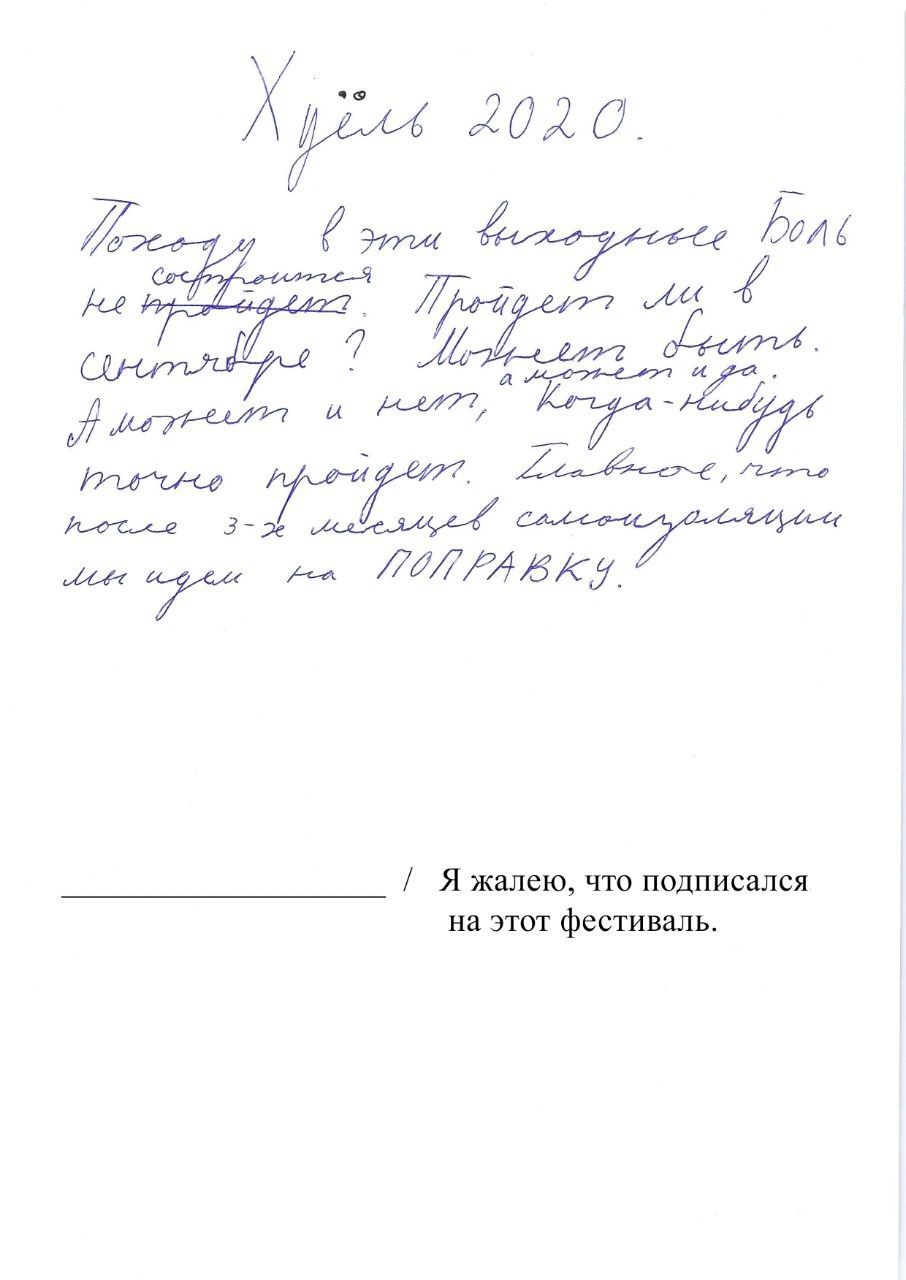 Хуёль 2020.
Походу в эти выходные Боль
состроится
не пройдет. Пройдет ли в
сентябре? Может быть.
а может и да.
А может и нет, Когда-нибудь
точно пройдет. Главное, что
после 3-х месяцев самоизоляции
мы идем на ПОПРАВКУ.
/ Я жалею, что подписался
на этот фестиваль.